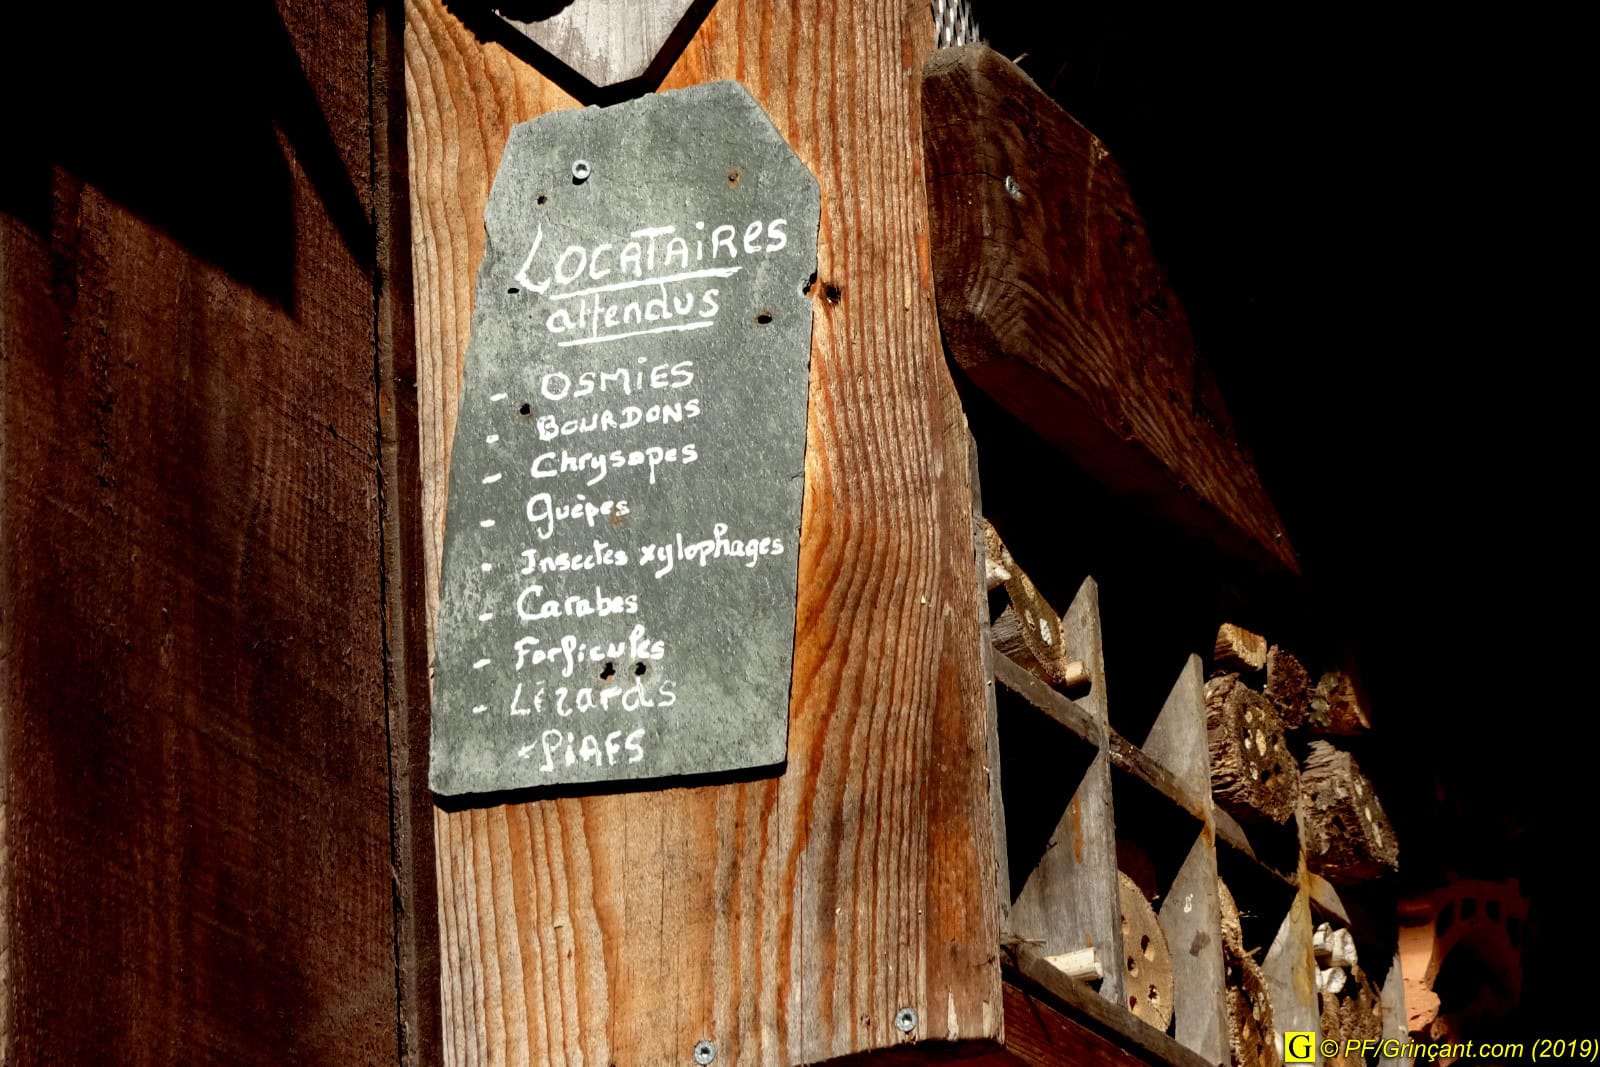 LOCATAIRes
attendus
- OSMIES
- BOURDONS
- Chrysopes
- Guêpes
- Insectes xylophages
- Carabes
- Forficules
- Lézards
- PIAFS
G © PF/Grinçant.com (2019)